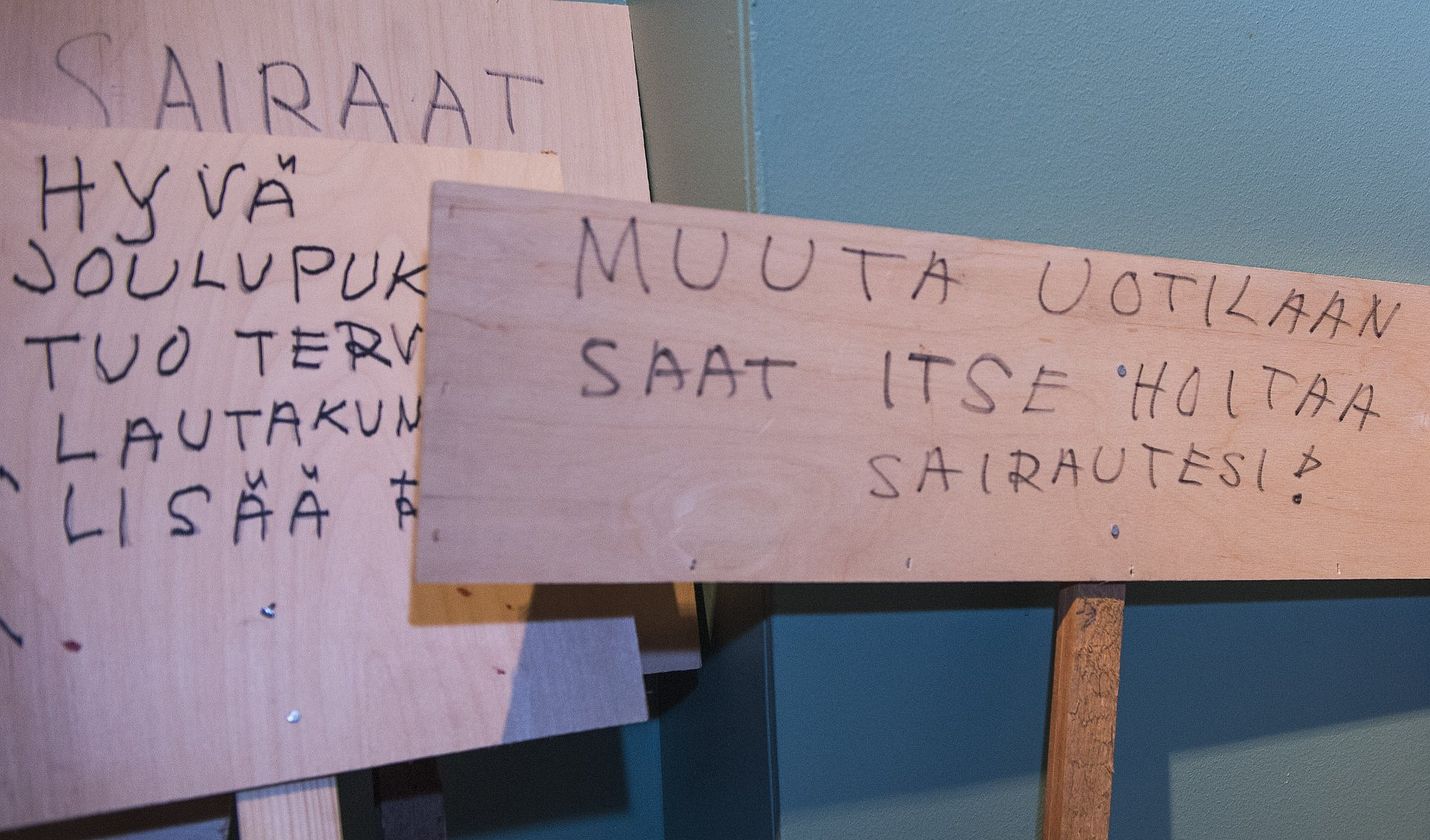 SAIRAAT
HYVÄ
JOULUPUK
TUO TERV
LAUTAKUN
LISÄÄ
MUUTA UOTILAAN
SAAT ITSE HOITAA
SAIRAUTESI!